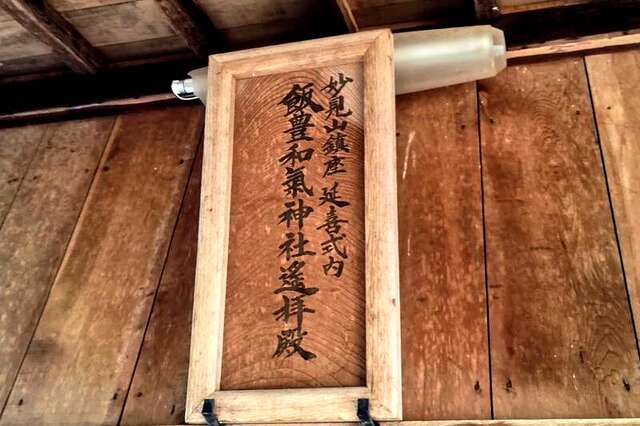 妙見山鎮座 延喜式内
飯豊和氣神社遙拝殿